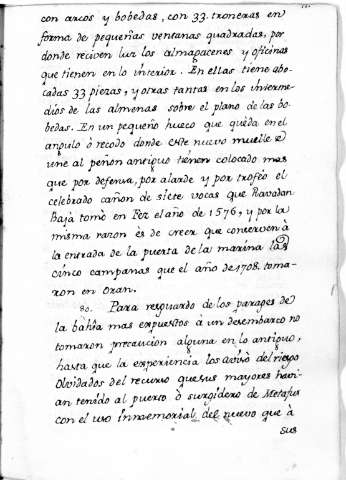 con arcos y bobedas, con 33. troneras en
forma de pequeñas ventanas quadradas, por
donde reciven luz los almagacenes y oficinas
que tienen en lo interior. En ellas tiene abo-
cadas 33 piezas, y otras tantas en los interme-
dios de las almenas sobre el plano de las bo-
bedas. En un pequeño hueco que queda en el
angulo ò recodo donde este nuevo muelle se
une al peñon antiguo tienen colocado mas
que por defensa, por alarde y por trofeo el
celebrado cañon de siete vocas que Ravadan
Baja tomò en Fez el año de 1576, y por la
misma razon ès de creer que conserven à
la entrada de la puerta de la marina las
cinco campanas que el año de 1708. toma-
ron en Oran.
80. Para resguardo de los parages de
la bahîa mas expuestos à un desembarco no
tomaron precaucion alguna en lo antiguo,
hasta que la experiencia los avisò del riesgo
Olvidados del recurso que sus mayores havi-
an tenido al puerto ò surgidero de Metafus
con el uso inmemorial del nuevo que à
sus